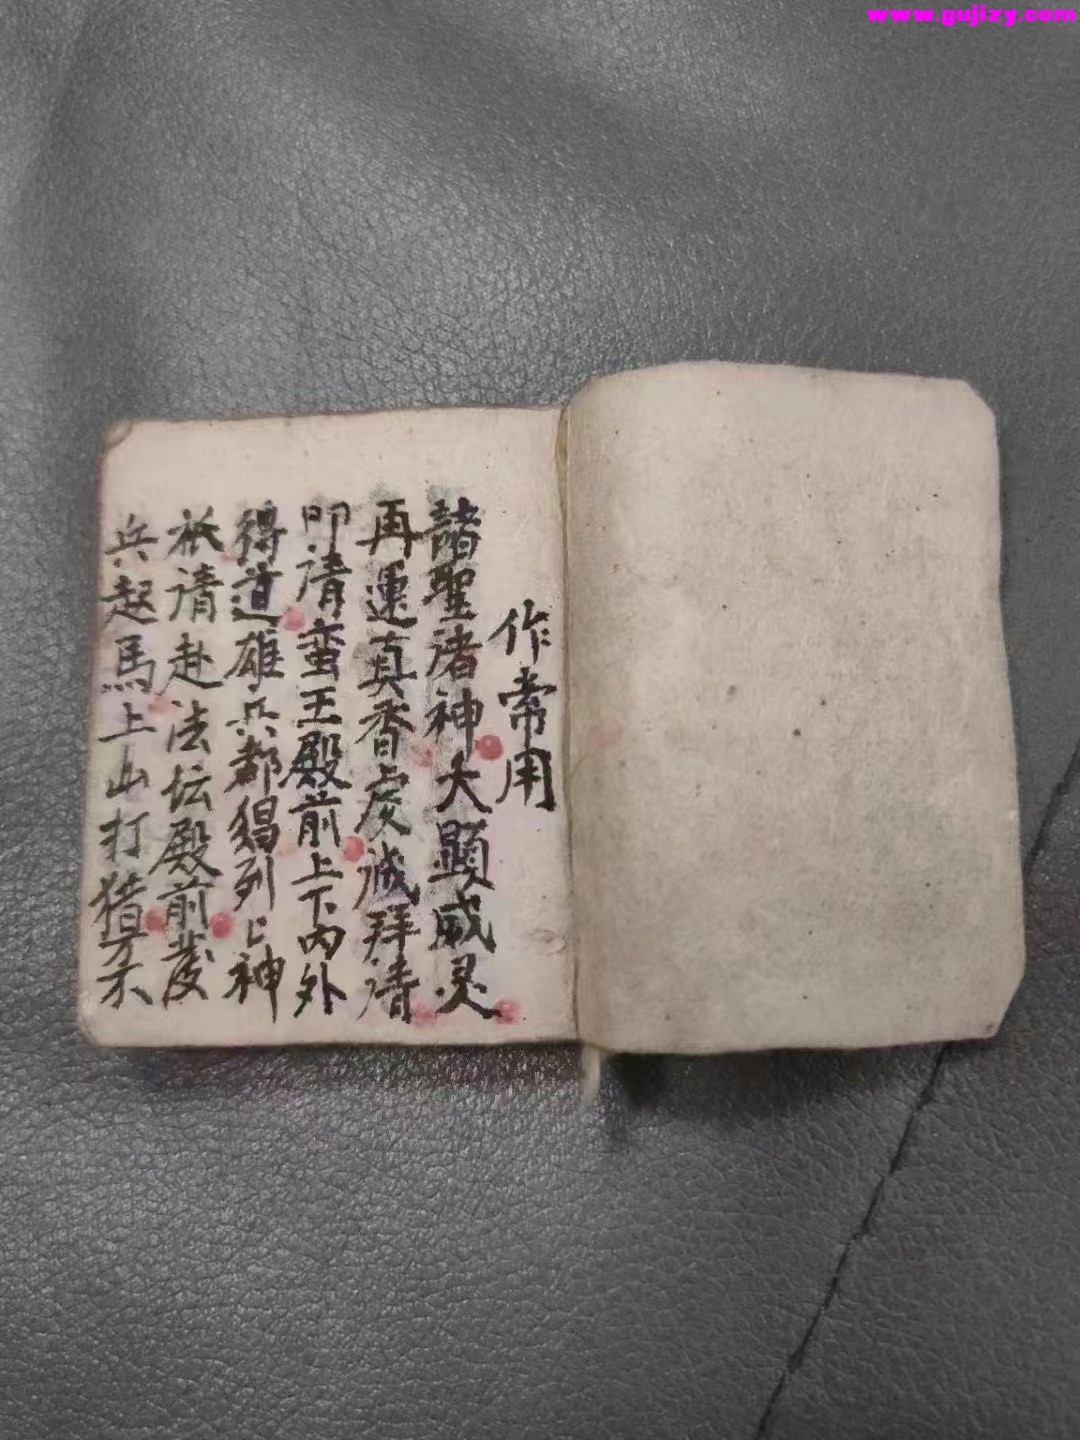 www.gujizy.com
作常用
諸聖诸神大顯威灵
再運真香虔诚拜请
叩请蛮王殿前上下内外
得道雄兵都猖列匕神
祇请赴法坛殿前發
兵起馬上山打猎